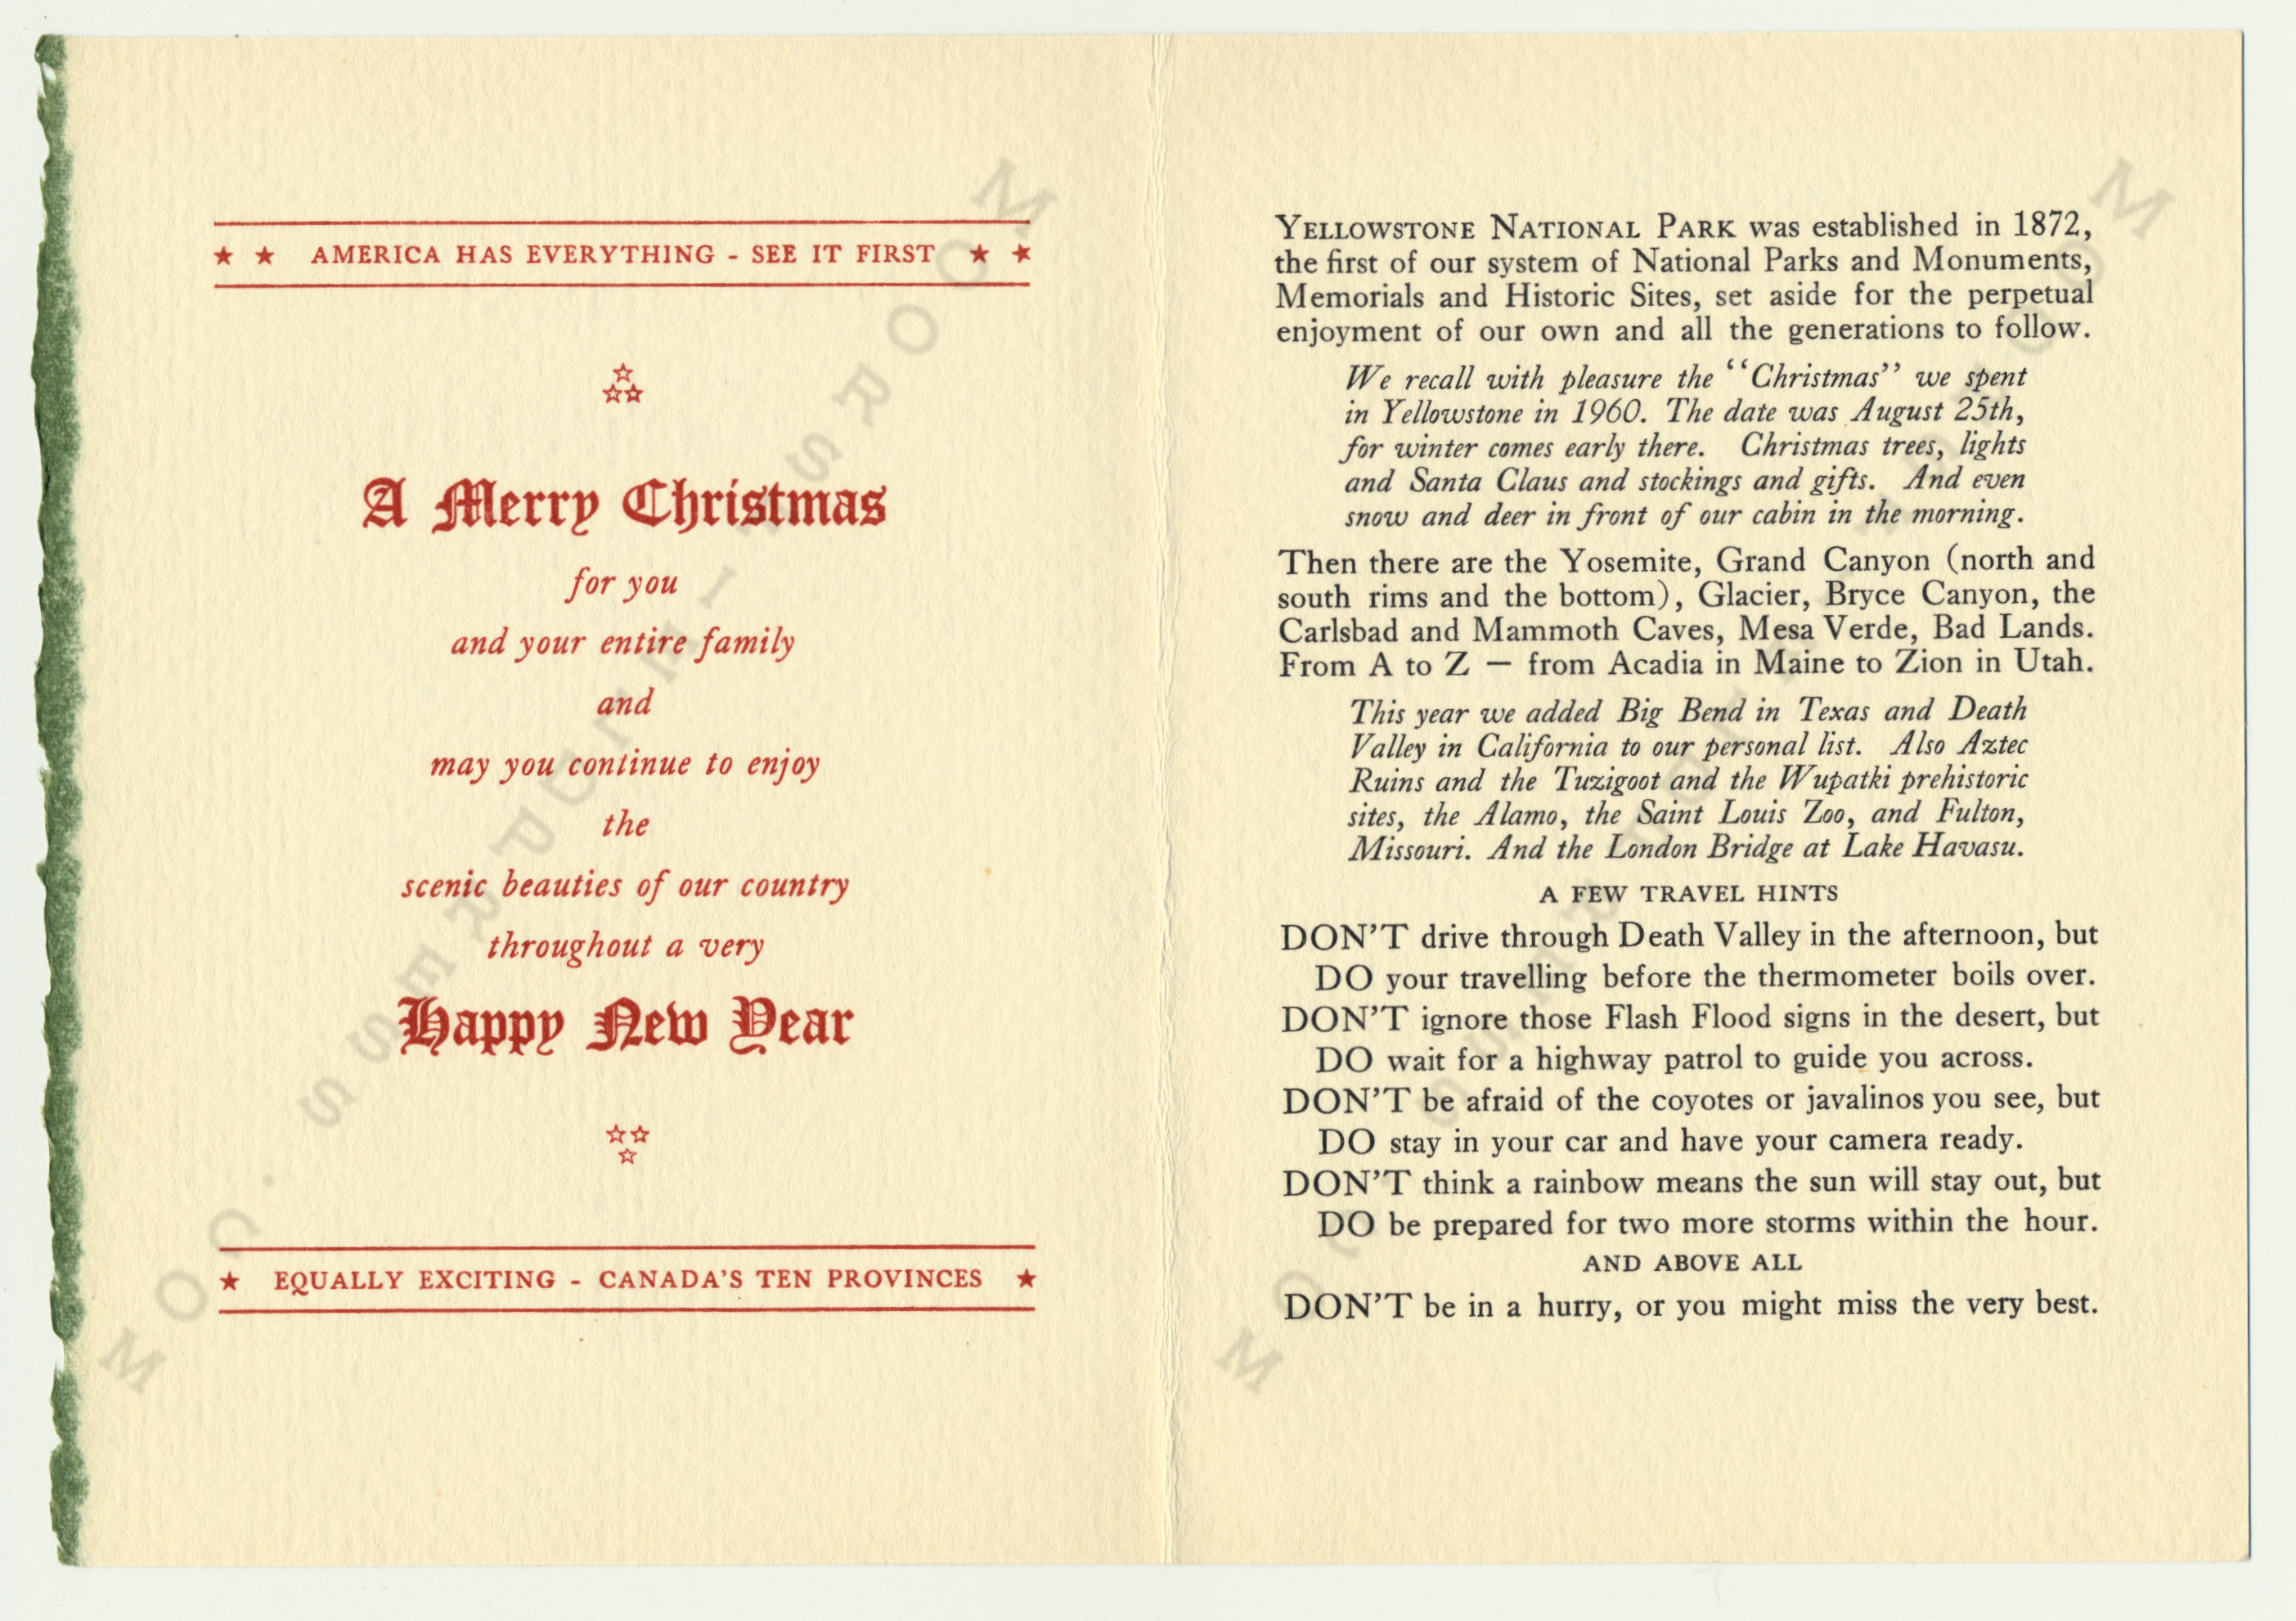 ★ ★ AMERICA HAS EVERYTHING - SEE IT FIRST ★ ★
A Merry Christmas
for you
and your entire family
and
may you continue to enjoy
the
scenic beauties of our country
throughout a very
Happy New Year
★ EQUALLY EXCITING - CANADA'S TEN PROVINCES ★
YELLOWSTONE NATIONAL PARK was established in 1872,
the first of our system of National Parks and Monuments,
Memorials and Historic Sites, set aside for the perpetual
enjoyment of our own and all the generations to follow.
We recall with pleasure the "Christmas" we spent
in Yellowstone in 1960. The date was August 25th,
for winter comes early there. Christmas trees, lights
and Santa Claus and stockings and gifts. And even
snow and deer in front of our cabin in the morning.
Then there are the Yosemite, Grand Canyon (north and
south rims and the bottom), Glacier, Bryce Canyon, the
Carlsbad and Mammoth Caves, Mesa Verde, Bad Lands.
From A to Z — from Acadia in Maine to Zion in Utah.
This year we added Big Bend in Texas and Death
Valley in California to our personal list. Also Aztec
Ruins and the Tuzigoot and the Wupatki prehistoric
sites, the Alamo, the Saint Louis Zoo, and Fulton,
Missouri. And the London Bridge at Lake Havasu.
A FEW TRAVEL HINTS
DON'T drive through Death Valley in the afternoon, but
DO your travelling before the thermometer boils over.
DON'T ignore those Flash Flood signs in the desert, but
DO wait for a highway patrol to guide you across.
DON'T be afraid of the coyotes or javalinos you see, but
DO stay in your car and have your camera ready.
DON'T think a rainbow means the sun will stay out, but
DO be prepared for two more storms within the hour.
AND ABOVE ALL
DON'T be in a hurry, or you might miss the very best.